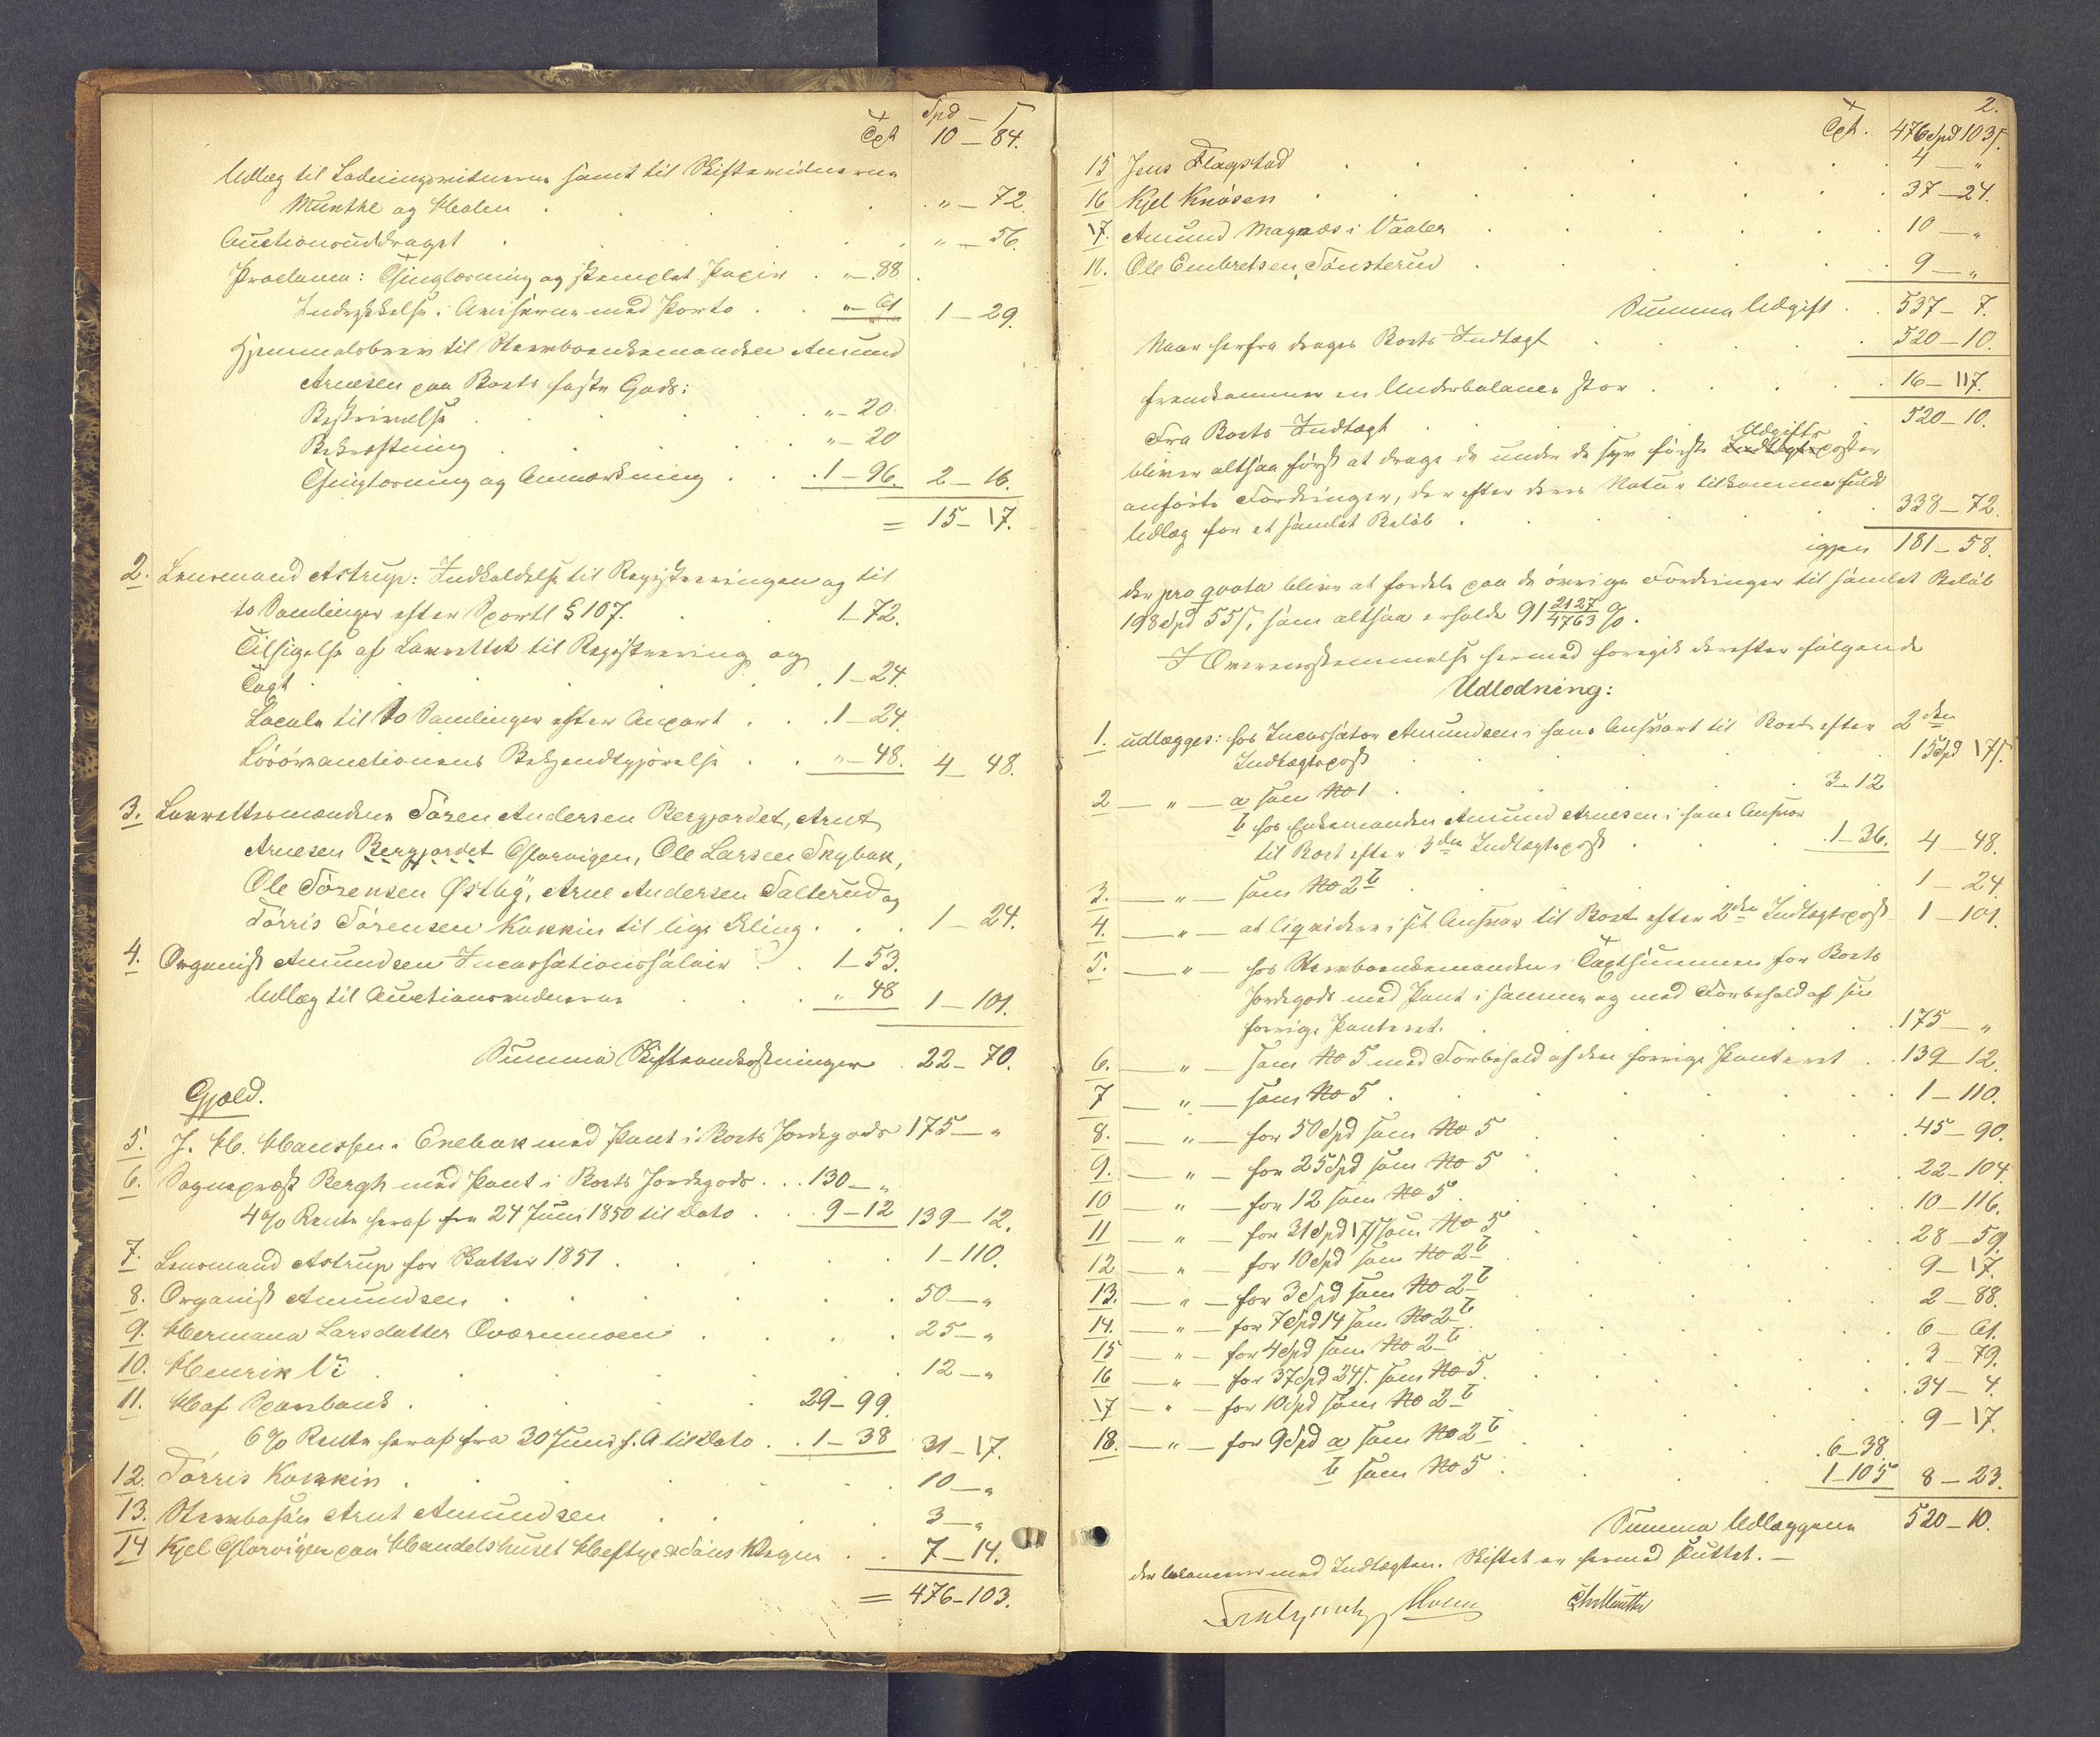 Spd – ſ
Tpt 10 – 84.
Udlæg til Ladningsvidnerne samt til Skiftevidnerne
Munthe og Holen . „ – 72.
Auctionsuddraget . „ – 56.
Proclama: Thinglæsning og stemplet Papir . „ – 88
Indrykkelse i Aviserne med Porto . . „ – 61 1 – 29.
Hjemmelsbrev til Stervboenkemanden Amund
Arnesen paa Boets faste Gods:
Beskrivelse . „ – 20
Bekræftning . „ – 20
Thinglæsning og Anmærkning . . 1 – 96. 2 – 16.
= 15 – 17.
2. Lensmand Astrup: Indkaldelse til Registreringen og til
to Samlinger efter Sportl § 107. . 1 – 72.
Tilsigelse af Lavrettet til Registrering og
Taxt . 1 – 24.
Locale til to Samlinger efter Anpart . . 1 – 24.
Løsøreauctionens Bekjendtgjørelse . . „ – 48. 4 – 48.
3. Lavrettesmændene Søren Andersen Bergjordet, Arnt
Arnesen Bergjordet Glorvigen, Ole Larsen Skybak,
Ole Sørensen Østby, Arne Andersen Salterud og
Tørris Sørensen Kokkin til lige Deling . . . 1 – 24.
4. Organist Amundsen Incassationssalair . . 1 – 53.
Udlæg til Auctionsvidnerne . „ 48 1 – 101.
Summa Skifteomkostninger . 22 – 70.
Gjæld.
5. J. H. Hanssen i Enebak med Pant i Boets Jordegods 175 – „
6. Sogneprest Bergh med Pant i Boets Jordegods . . . 130 – „
4 % Rente heraf fra 24 Juni 1850 til Dato . . . 9 – 12 139 – 12.
7. Lensmand Astrup for Skatter 1851 . 1 – 110.
8. Organist Amundsen . 50 – „
9. Hermana Larsdatter Oværnmoen . 25 – „
10. Henrik Vi . 12 – „
11. Hof Sparebank . 29 – 99.
6 % Rente heraf fra 30 Juni f. A til Dato . . 1 – 38 31 – 17.
12. Tørris Kokkin . 10 – „
13. Stervbosøn Arnt Amundsen . 3 – „
14 Kjel Glorvigen paa Handelshuset Heftye & Søns Vegne . . 7 – 14.
= 476 – 103.
2.
Tpt. 476 Spd 103 ſ.
15 Jens Flagstad . 4 – „
16 Kjel Knøsen . 37 – 24.
17. Amund Magnæs i Vaaler . 10 – „
18. Ole Embretsen Tønsterud . 9 – „
Summa Udgift . . 537 – 7.
Naar herfra drages Boets Indtægt . 520 – 10.
fremkommer en Underbalance stor . 16 – 117.
Fra Boets Indtægt . 520 – 10.
Udgifts
bliver altsaa først at drage de under de syv første Indtægtsposter
anførte Fordringer, der efter deres Natur tilkomme fuldt
Udlæg for et samlet Beløb . 338 – 72.
igjen 181 – 58.
der pro qvota bliver at fordele paa de øvrige Fordringer til samlet Beløb
198 Spd 55 ſ, som altsaa erholde 91 2127/4763 %.
I Overensstemmelse hermed foregik derefter følgende
Udlodning:
1. udlægges: hos Incassator Amundsen i hans Ansvar til Boet efter 2den
Indtægtspost . 15 Spd 17 ſ.
2 – „ – a som No 1 . 3 – 12
b hos Enkemanden Amund Arnesen i hans Ansvar
til Boet efter 3die Indtægtspost . . 1 – 36. 4 – 48.
3. – „ – som No 2 b . 1 – 24
4. – „ – at liqvidere i sit Ansvar til Boet efter 2den Indtægtspost 1 – 101.
5. – „ – hos Stervboenkemanden i Taxtsummen for Boets
Jordegods med Pant i samme og med Forbehold af sin
forrige Panteret. . 175 – „
6. – „ – som No 5 med Forbehold af den forrige Panteret . . 139 – 12.
7 – „ – som No 5 . 1 – 110.
8. – „ – for 50 Spd som No 5 . 45 – 90.
9. – „ – for 25 Spd som No 5 . 22 – 104.
10 – „ – for 12 som No 5 . 10 – 116.
11 – „ – for 31 Spd 17 ſ som No 5 . 28 – 59.
12 – „ – for 10 Spd som No 2 b . 9 – 17.
13. – „ – for 3 Spd som No 2 b . 2 – 88.
14. – „ – for 7 Spd 14 som No 2 b . 6 – 61.
15 – „ – for 4 Spd som No 2 b . 3 – 79.
16 – „ – for 37 Spd 24 ſ. som No 5 . 34 – 4.
17 – „ – for 10 Spd som No 2 b . 9 – 17.
18. – „ – for 9 Spd a som No 2 b . 6 – 38.
b som No 5 . 1 – 105 8 – 23.
Summa Udlæggene 520 – 10.
der balancerer med Indtægten. Skiftet er hermed sluttet. –
Holen Chr Munthe